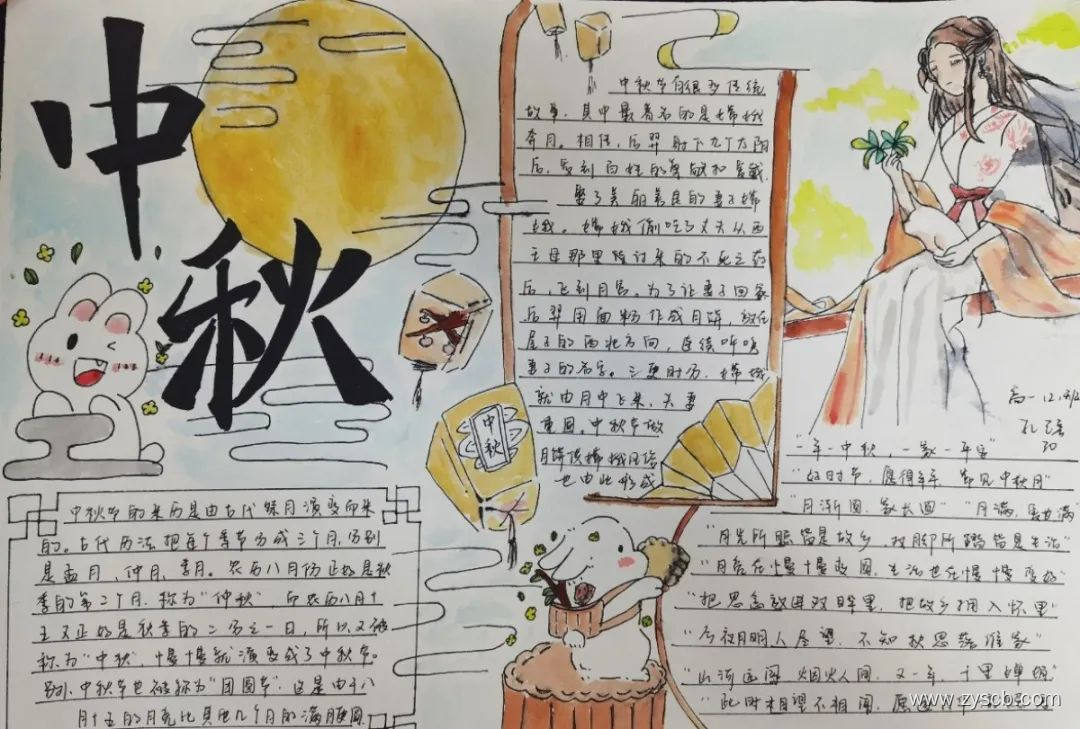 中秋
中秋节有很多传统
故事，其中最著名的是嫦娥
奔月。相传，后羿射下九个太阳
后，受到百姓的尊敬和爱戴，
娶了美丽善良的妻子嫦
娥。嫦娥偷吃了丈夫从西
王母那里讨来的不死之药
后，飞到月宫。为了让妻子回家
后羿用面粉作成月饼，放在
屋子的西北方向，连续呼唤
妻子的名字。三更时分，嫦娥
就由月中飞来，夫妻
重圆。中秋节做
月饼供嫦娥风俗
也由此形成
中秋
高一
孔
中秋节的来历是由古代
的。古代历法把每个季节分成三个月，分别
是孟月，仲月，季月。农历八月份正好是秋
季的第二个月，称为“仲秋”，而农历八月十
五又正好是秋季的二分之一日，所以又被
称为“中秋”，慢慢就演变成了中秋节。
中秋节也被称为“团圆节”，这是由于八
月十五的月亮比其他几个月的满月圆
“一年一中秋，一家一
“好时节，愿得年年，常见中秋月”
“月渐圆，家长圆” “月满，
“月光所照皆是故乡，双脚所踏皆是生活”
“月亮在慢慢变圆，生活也在慢慢变好”
“把思念放进双眸里，把故乡拥入怀里”
“今夜月明人尽望，不知秋思落谁家”
“山河远阔，烟火人间，又一年，千里婵娟”
“此时相望不相闻，愿逐月华流照君
www.zyscb.com